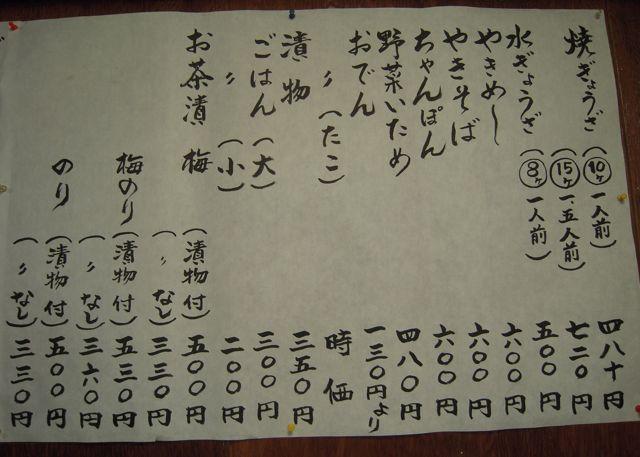 焼ぎょうざ (10ヶ 一人前) 四八十円
(15ヶ 一.五人前) 七二〇円
水ぎょうざ (8ヶ 一人前) 五〇〇円
やきめし 六〇〇円
やきそば 六〇〇円
ちゃんぽん 六〇〇円
野菜いため 四八〇円
おでん 一三〇円より
〃 (たこ) 時価
漬物 三五〇円
ごはん (大) 三〇〇円
〃 (小) 二〇〇円
お茶漬 梅 (漬物付) 五〇〇円
(〃 なし) 三三〇円
梅のり (漬物付) 五三〇円
(〃 なし) 三六〇円
のり (漬物付) 五〇〇円
(〃 なし) 三三〇円